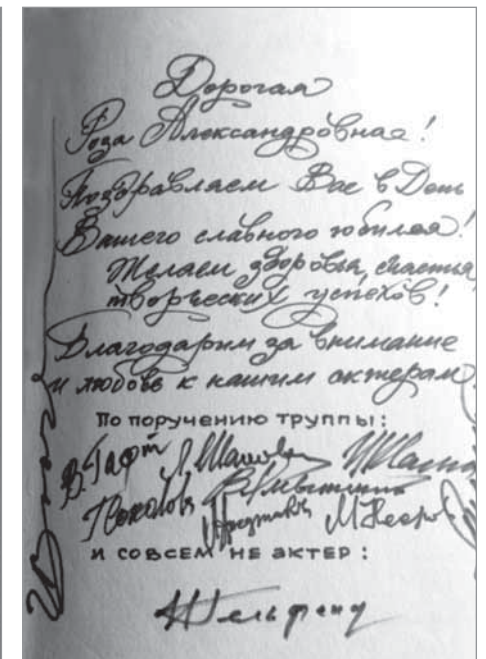 Дорогая
Роза Александровна!
Поздравляем Вас в День
Вашего славного юбилея!
Желаем здоровья, счастья,
творческих успехов!
Благодарим за внимание
и любовь к нашим актерам.
По поручению труппы:
В. Гафт
М. Неёлова
и совсем не актер: